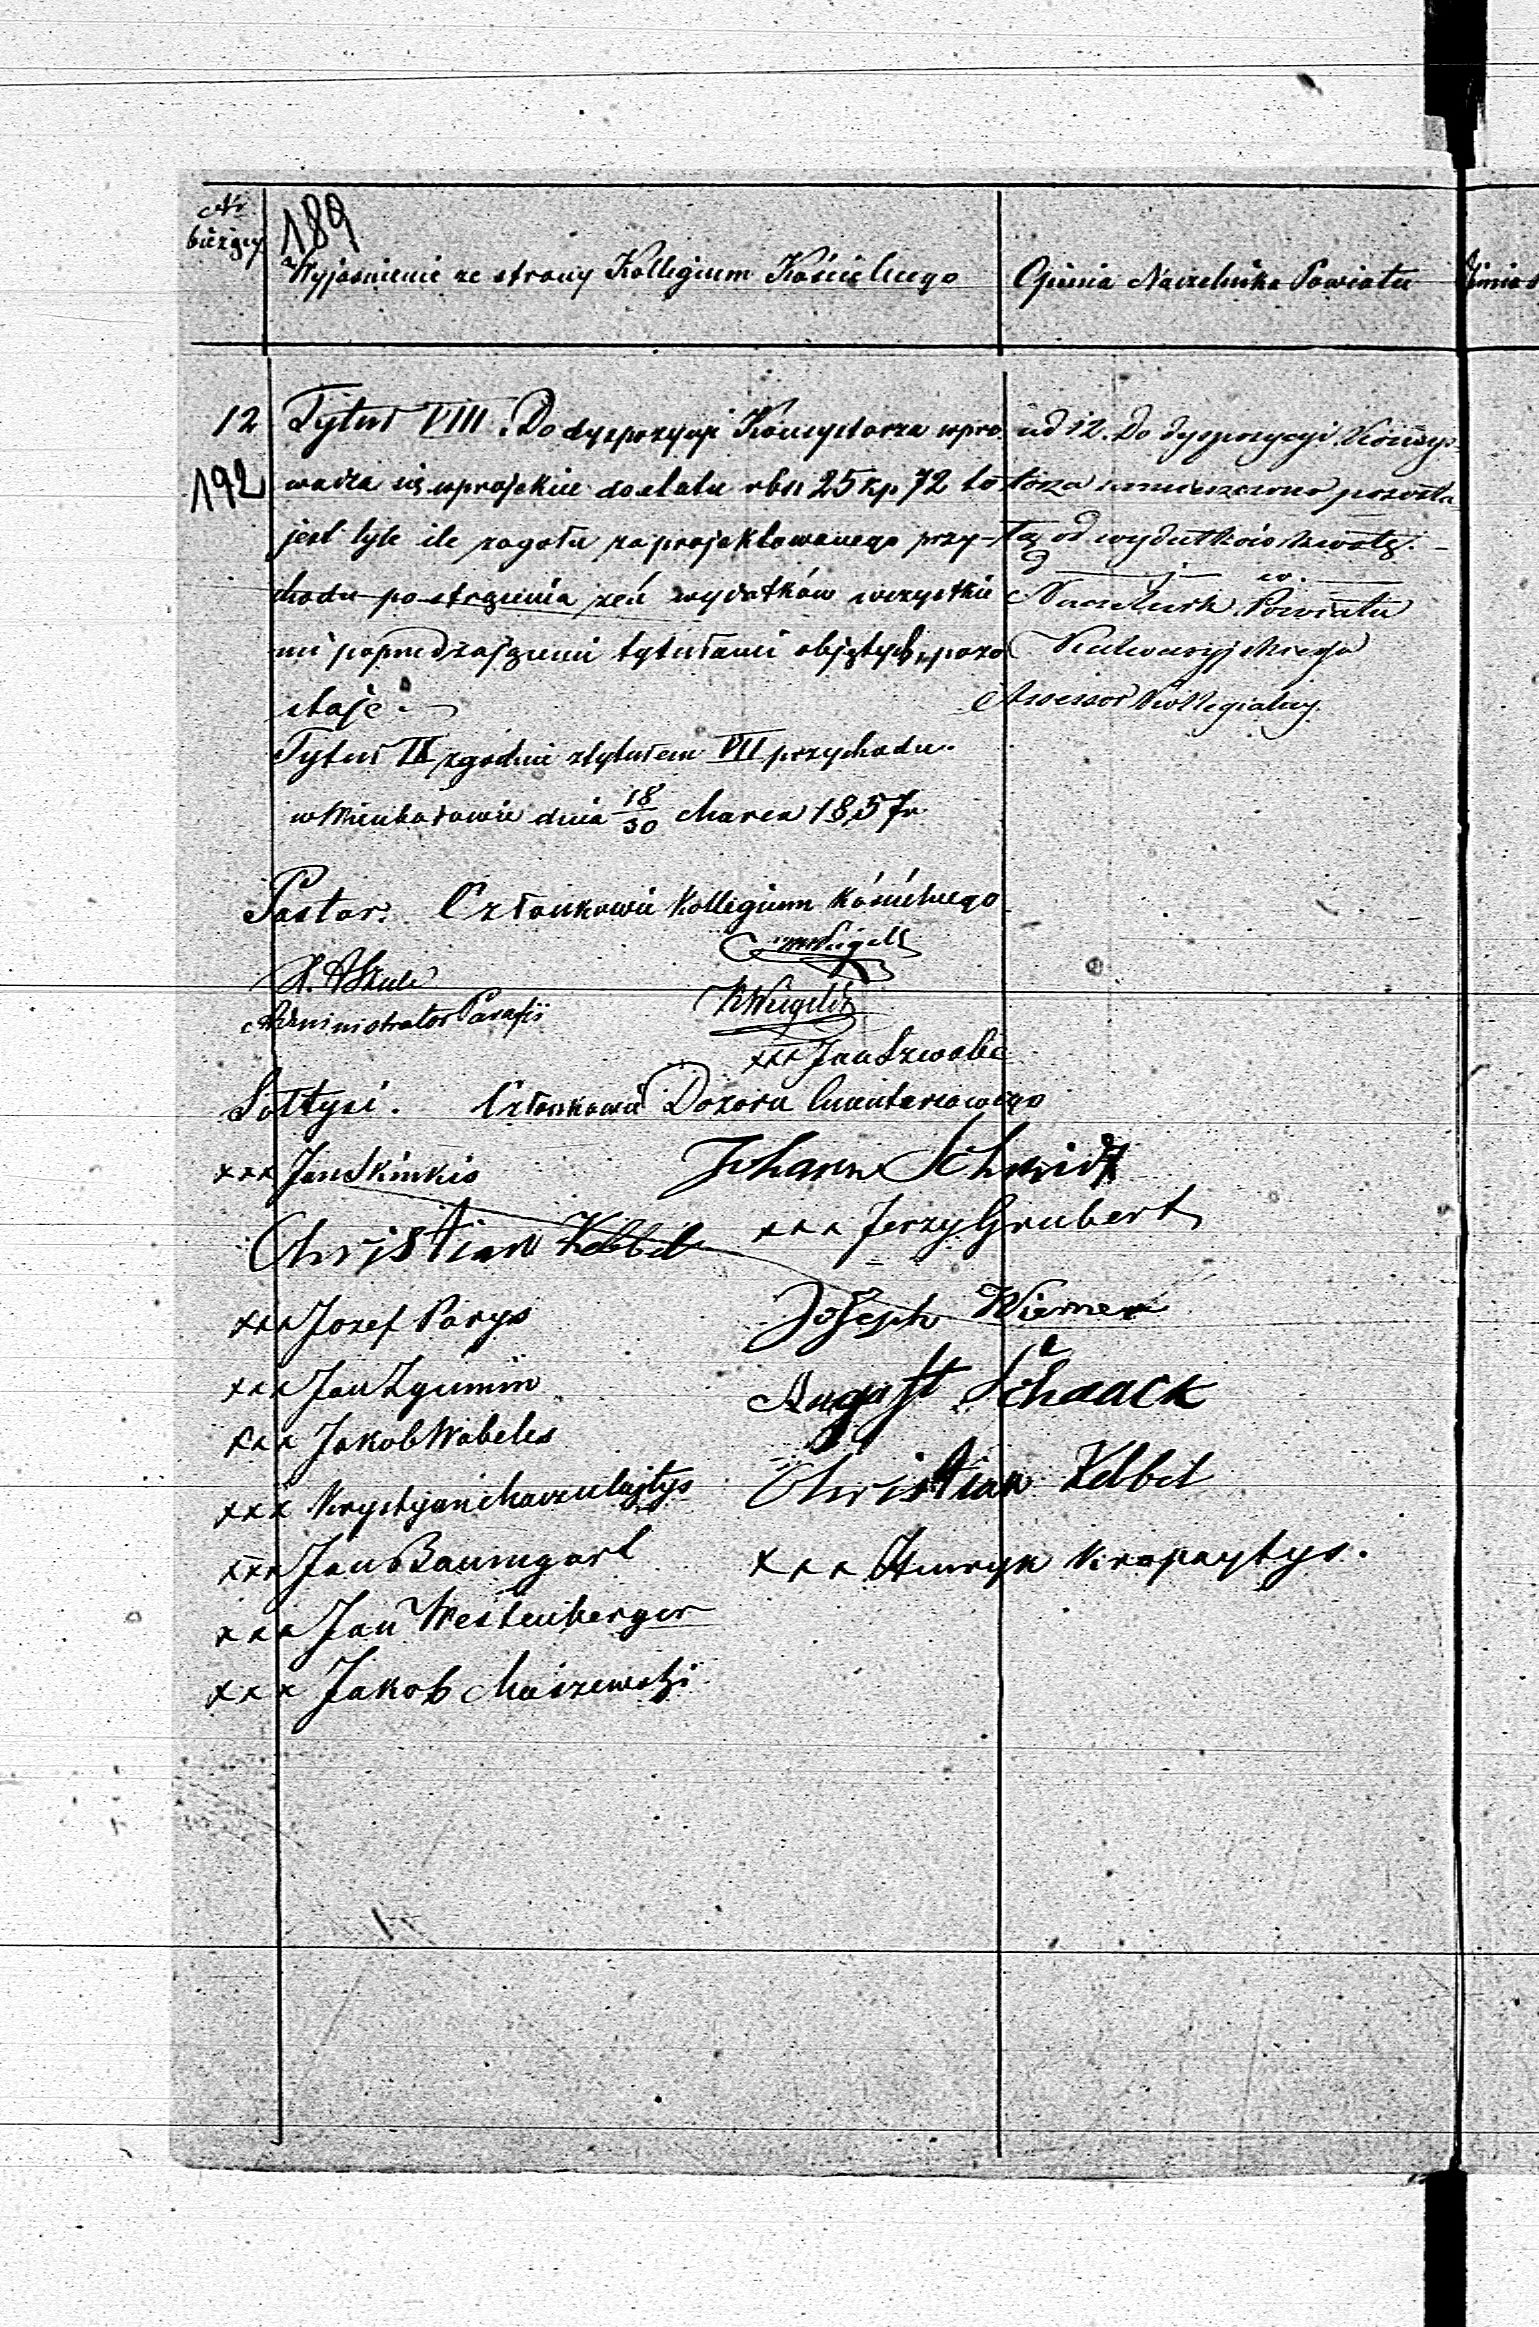 Nr
bieżący
189
Wyjaśnienie ze strony Kollegium Kościelnego
Opinia Naczelnika Powiatu
12
192
Tytuł VIII. Do dyspozycyi Konsystorza wpro
wadza się w projekcie do etatu rbsr 25 kp 72 to
jest tyle ile z ogółu zaprojektowanego przy-
chodu po strąceniu zeń wydatków wszystkie
mi poprzedzającemi tytułami objętych, pozo
staje.
Tytuł IX zgodnie z tytułem VII przychodu.
w dnia 18/30 Marca 1857 r.
ad 12. Do dyspozycyi Konsys-
torza pozosta
łą od wydatków kwotę.
Naczelnik Powiatu
Kalwaryjskiego
Assessor Kollegialny
Pastor. Członkowie Kollegium Kościelnego
Administrator Parafii
xxx Jan Szwabe
Sołtysi. Członkowie Dozoru Cmentarzowego
xxx Jan Skinkis
Johann Schmidt
Christian Kebbel
xxx Jerzy Grubert
xxx Jozef Parys
Joseph Wierner
xxx Jan
August Schaack
xxx Jakob Wabeles
Christian Kebbel
xxx Krystyan
xxx Jan Baumgart
xxx Henryk Krapaytys.
xxx Jan Westenberger
xxx Jakob Maiszewski